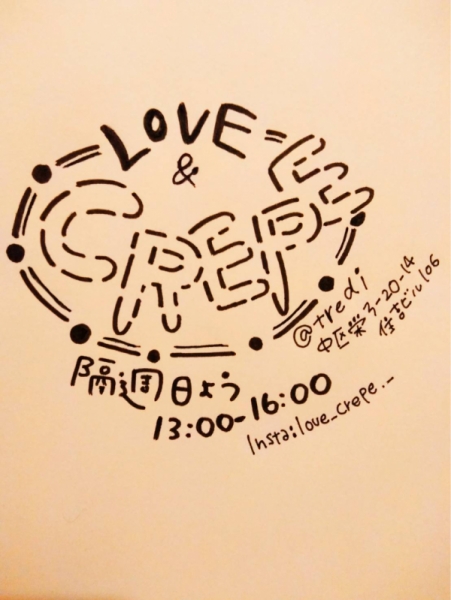 LOVE
&
CREPES
@tredi
中区栄3-20-14
住吉ビル106
隔週日よう
13:00-16:00
Insta:love_crepe._